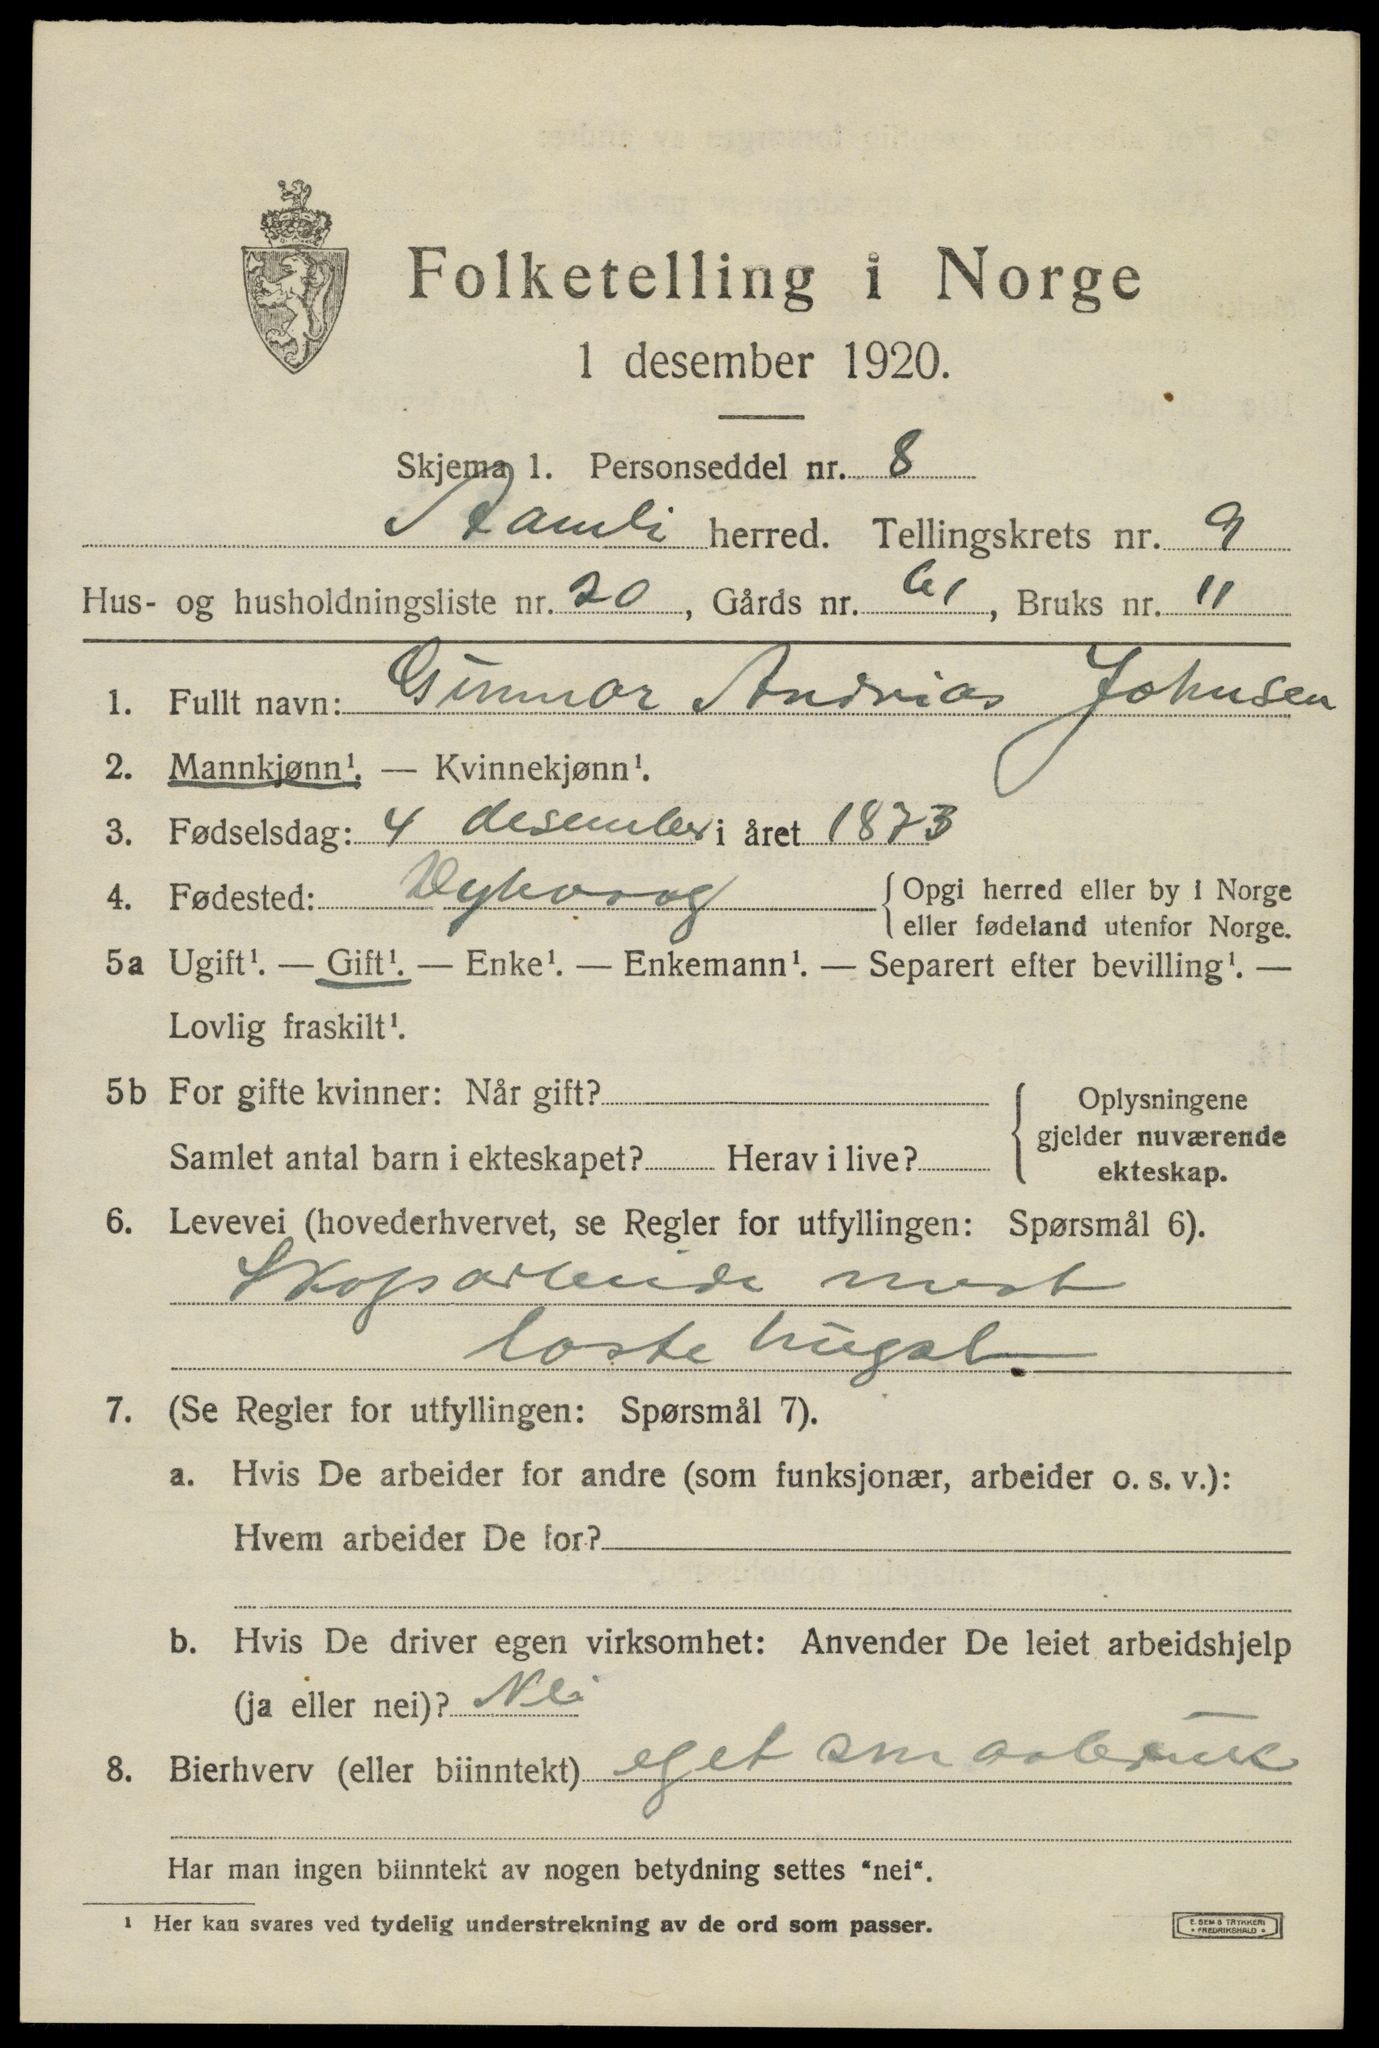 Folketelling i Norge
1 desember 1920.
Skjema 1. Personseddel nr. 8
Åmli herred. Tellingskrets nr. 9
Hus- og husholdningsliste nr. 20, Gårds nr. 61, Bruks nr. 11
1. Fullt navn: Gunnar Andrias Johnsen
2. Mannkjønn¹. — Kvinnekjønn¹.
3. Fødselsdag: 4 desember i året 1873
4. Fødested: Dyvaag { Opgi herred eller by i Norge
eller fødeland utenfor Norge.
5a Ugift¹. — Gift¹. — Enke¹. — Enkemann¹. — Separert efter bevilling¹. —
Lovlig fraskilt¹.
5b For gifte kvinner: Når gift? { Oplysningene
gjelder nuværende
ekteskap.
Samlet antal barn i ekteskapet? Herav i live?
6. Levevei (hovederhvervet, se Regler for utfyllingen: Spørsmål 6).
Skogsarbeide mest
hugst
7. (Se Regler for utfyllingen: Spørsmål 7).
a. Hvis De arbeider for andre (som funksjonær, arbeider o. s. v.):
Hvem arbeider De for?
b. Hvis De driver egen virksomhet: Anvender De leiet arbeidshjelp
(ja eller nei)? Nei
8. Bierhverv (eller biinntekt) eget smaabruk
Har man ingen biinntekt av nogen betydning settes "nei".
¹ Her kan svares ved tydelig understrekning av de ord som passer.
E. SEM S TRYKKERI
• FREDRIKSHALD •